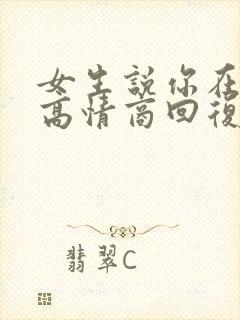 女生説你在
高情商回復
翡翠C